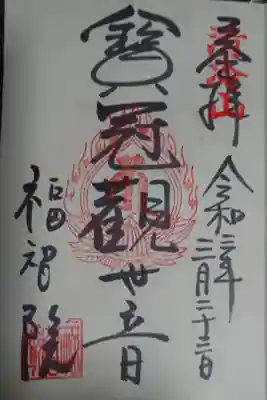 奉拝
令和二年
三月二十二日
寶冠觀世音
福智院